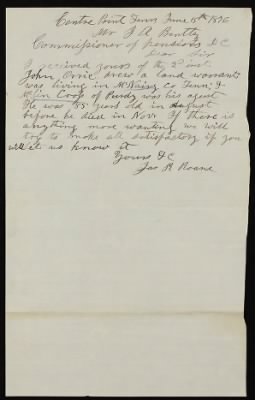 Centre Point Tenn June 5th 1876
Mr J A Bently
Commissioner of Pensions D C
Dear Sir
I received yours of the 2d inst.
John Orric drew a land warrant
was living in McNairy Co. Tenn. &
of Purdy was his agent
He was 85 years old in August
before he died in Novr. If there is
anything more wanting we will
try to make all satisfactory if you
let us know it
Yours &C
Jas R Roane